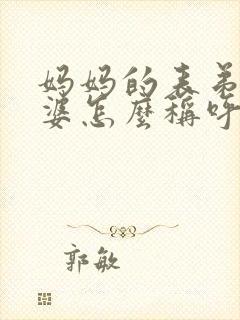 妈妈的表弟
婆怎麼稱呼
郭敏